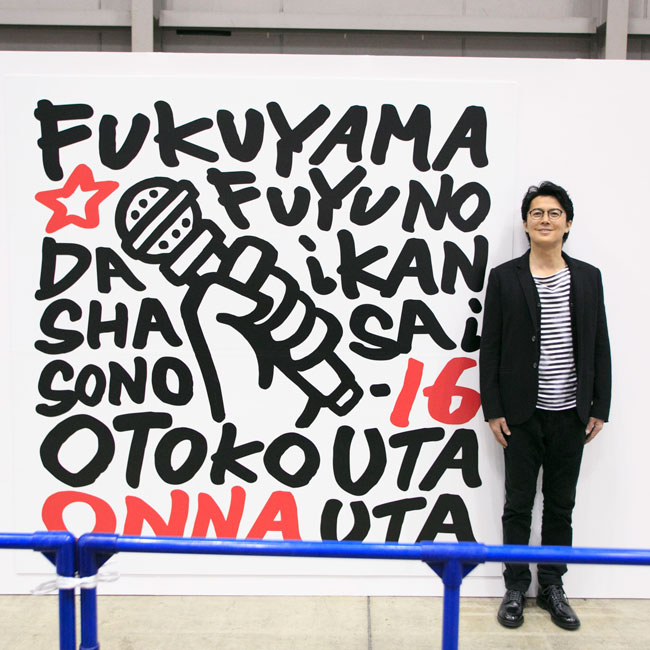 FUKUYAMA
☆FUYU NO
DAiKAN
SHASAi
SONO-16
OTOKO UTA
ONNA UTA